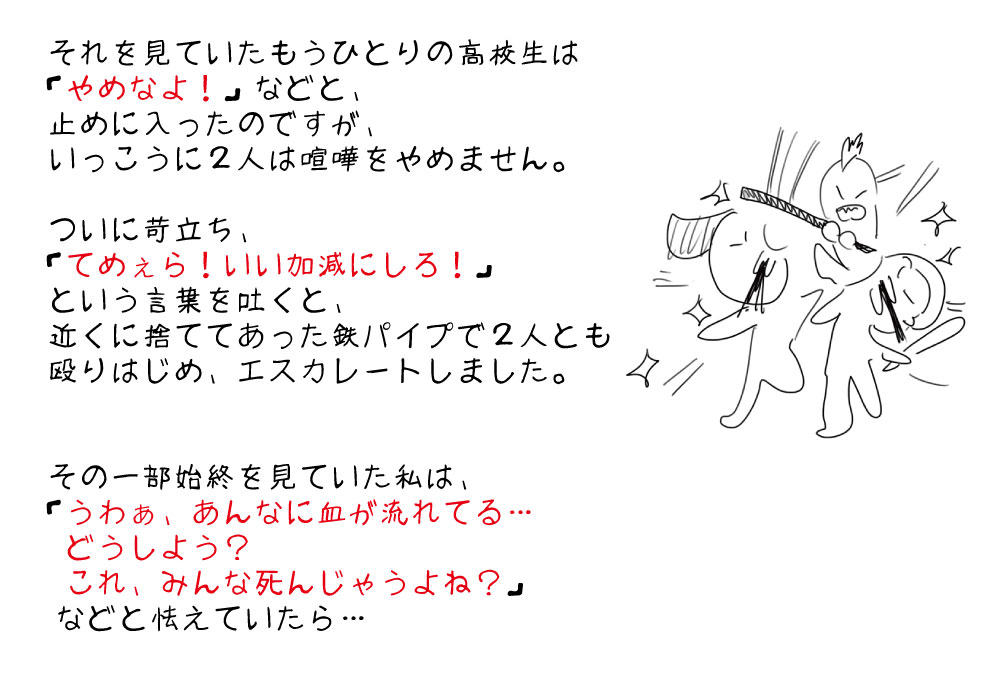 それを見ていたもうひとりの高校生は
「やめなよ！」などと、
止めに入ったのですが、
いっこうに２人は喧嘩をやめません。
ついに苛立ち、
「てめぇら！いい加減にしろ！」
という言葉を吐くと、
近くに捨ててあった鉄パイプで２人とも
殴りはじめ、エスカレートしました。
その一部始終を見ていた私は、
「うわぁ、あんなに血が流れてる…
どうしよう？
これ、みんな死んじゃうよね？」
などと怯えていたら…